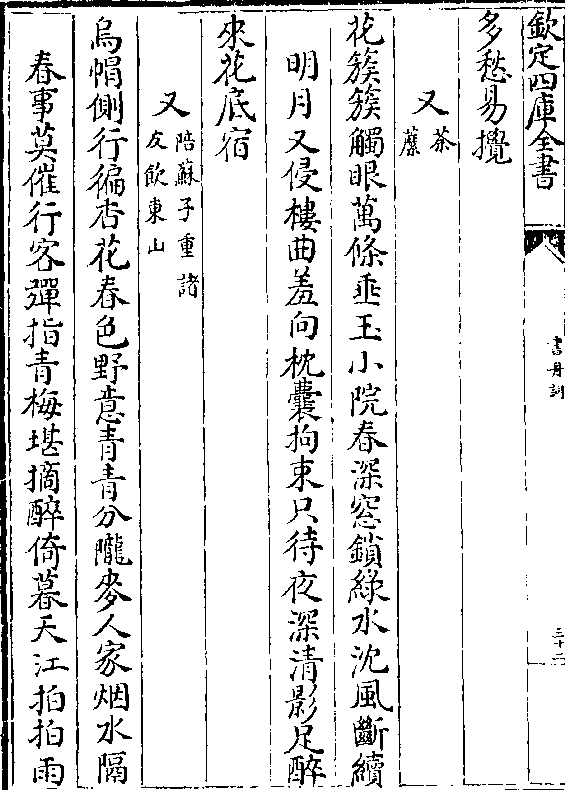 欽定四庫全書
書舟詞
三十二
多愁易攪
又荼䕷
花簇簇觸眼萬條垂玉小院春深窓鎖緑水沈風斷續
明月又侵樓曲羞向枕囊拘束只待夜深清影足醉
來花底宿
又陪蘇子重諸友飲東山
烏帽側行徧杏花春色野意青青分隴麥人家烟水隔
春事莫催行客彈指青梅堪摘醉倚暮天江拍拍雨